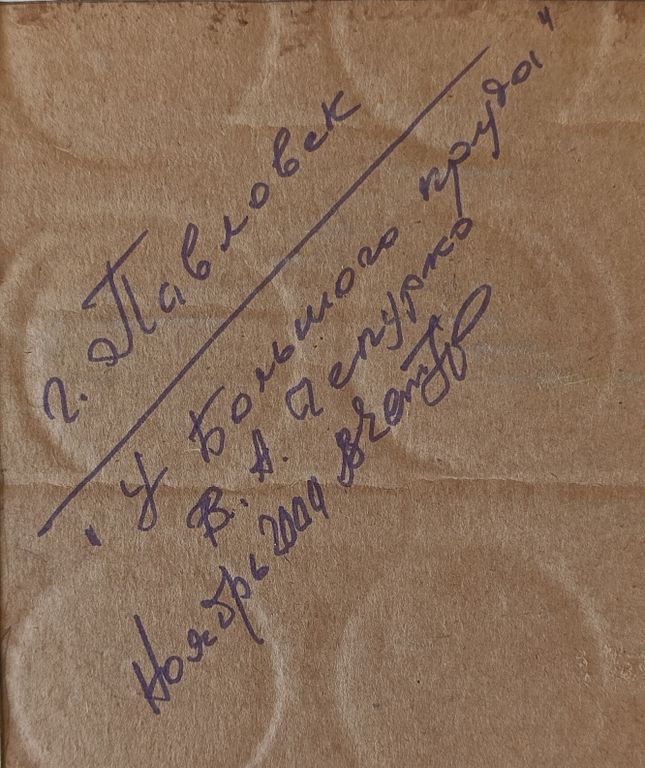 г. Павловск
"У Большого пруда"
В. А. Чепурко
Ноябрь 2004